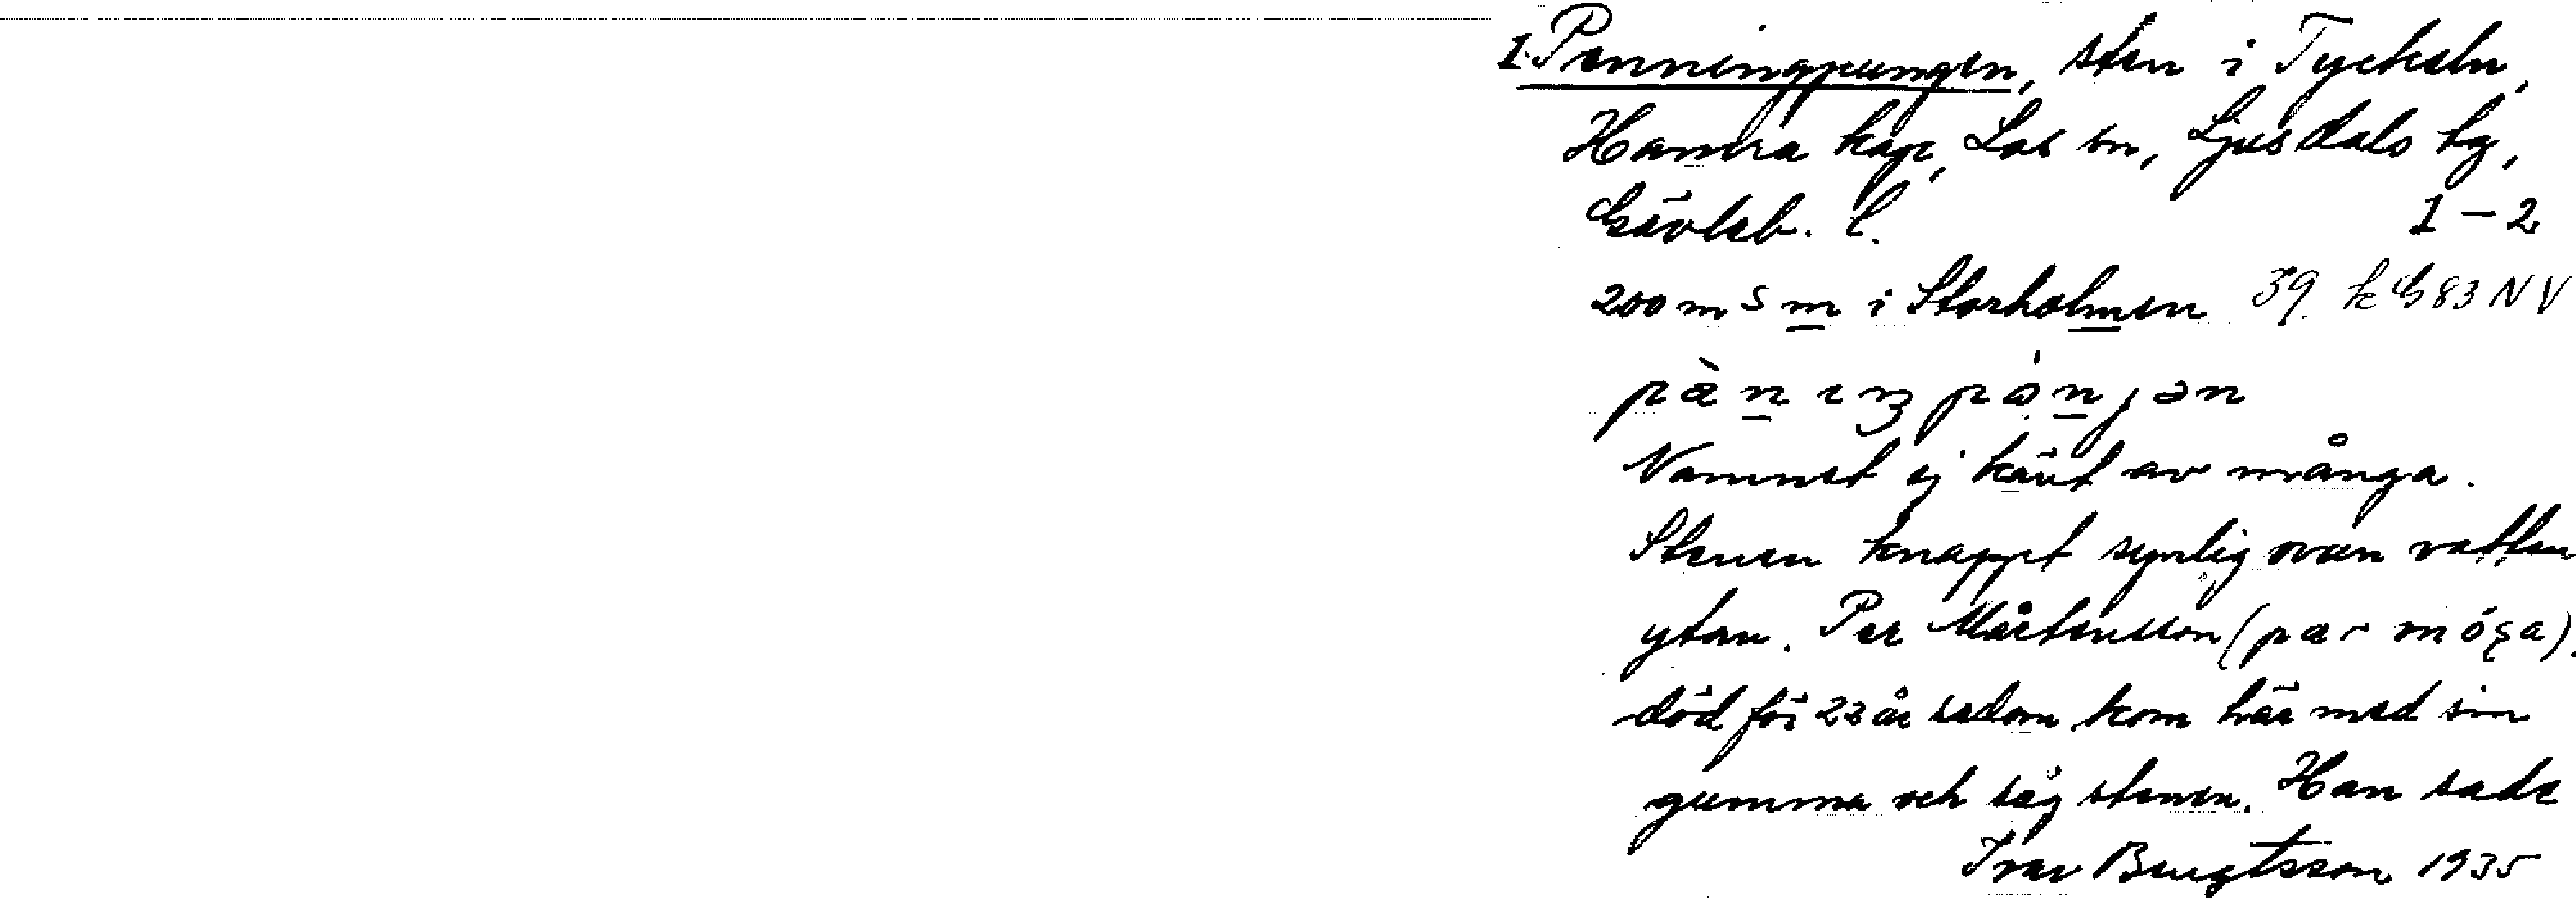 1. Penningpungen, sten i Tyckeln,
Hamra kap, Los sn, Ljusdals tg,
Gävleb. l. 1-2
200 m S m i Storholmen 39 k G83 NV
Namnet ej känt av många.
Stenen knappt synlig ovan vatten
ytan. Per Mårtensson (pær móṣa),
död för 22 år sedan kom här med sin
gumma och såg stenen. Han sade
Ivar Bengtsson 1935